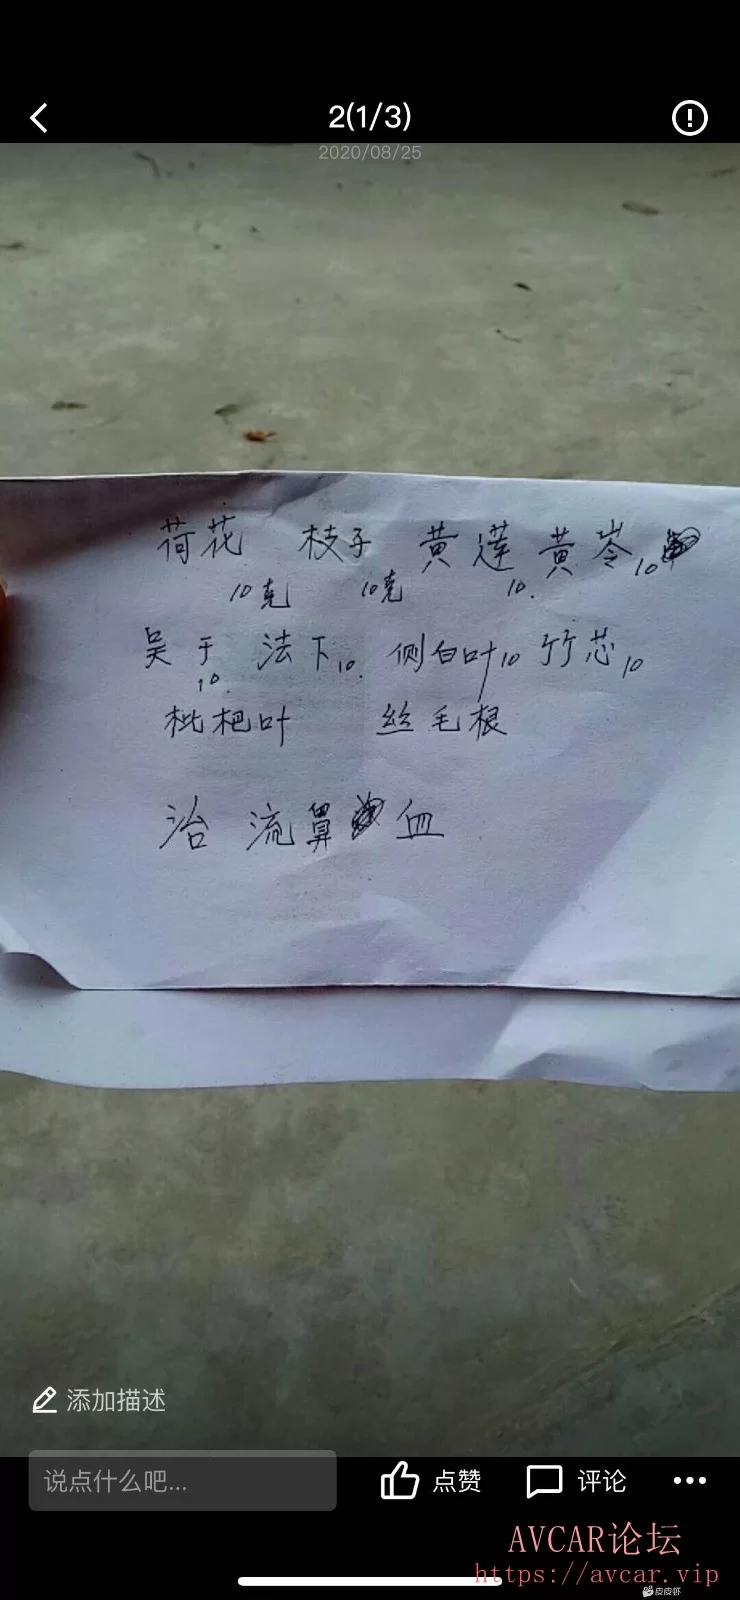 2(1/3)
2020/08/25
荷花 枝子 黄莲 黄岑10
10克 10克 10.
吴于 法下10. 侧白叶10 竹芯10
10.
枇杷叶 丝毛根
治 流鼻血
添加描述
说点什么吧... 点赞 评论
AVCAR论坛
https://avcar.vip
皮皮虾